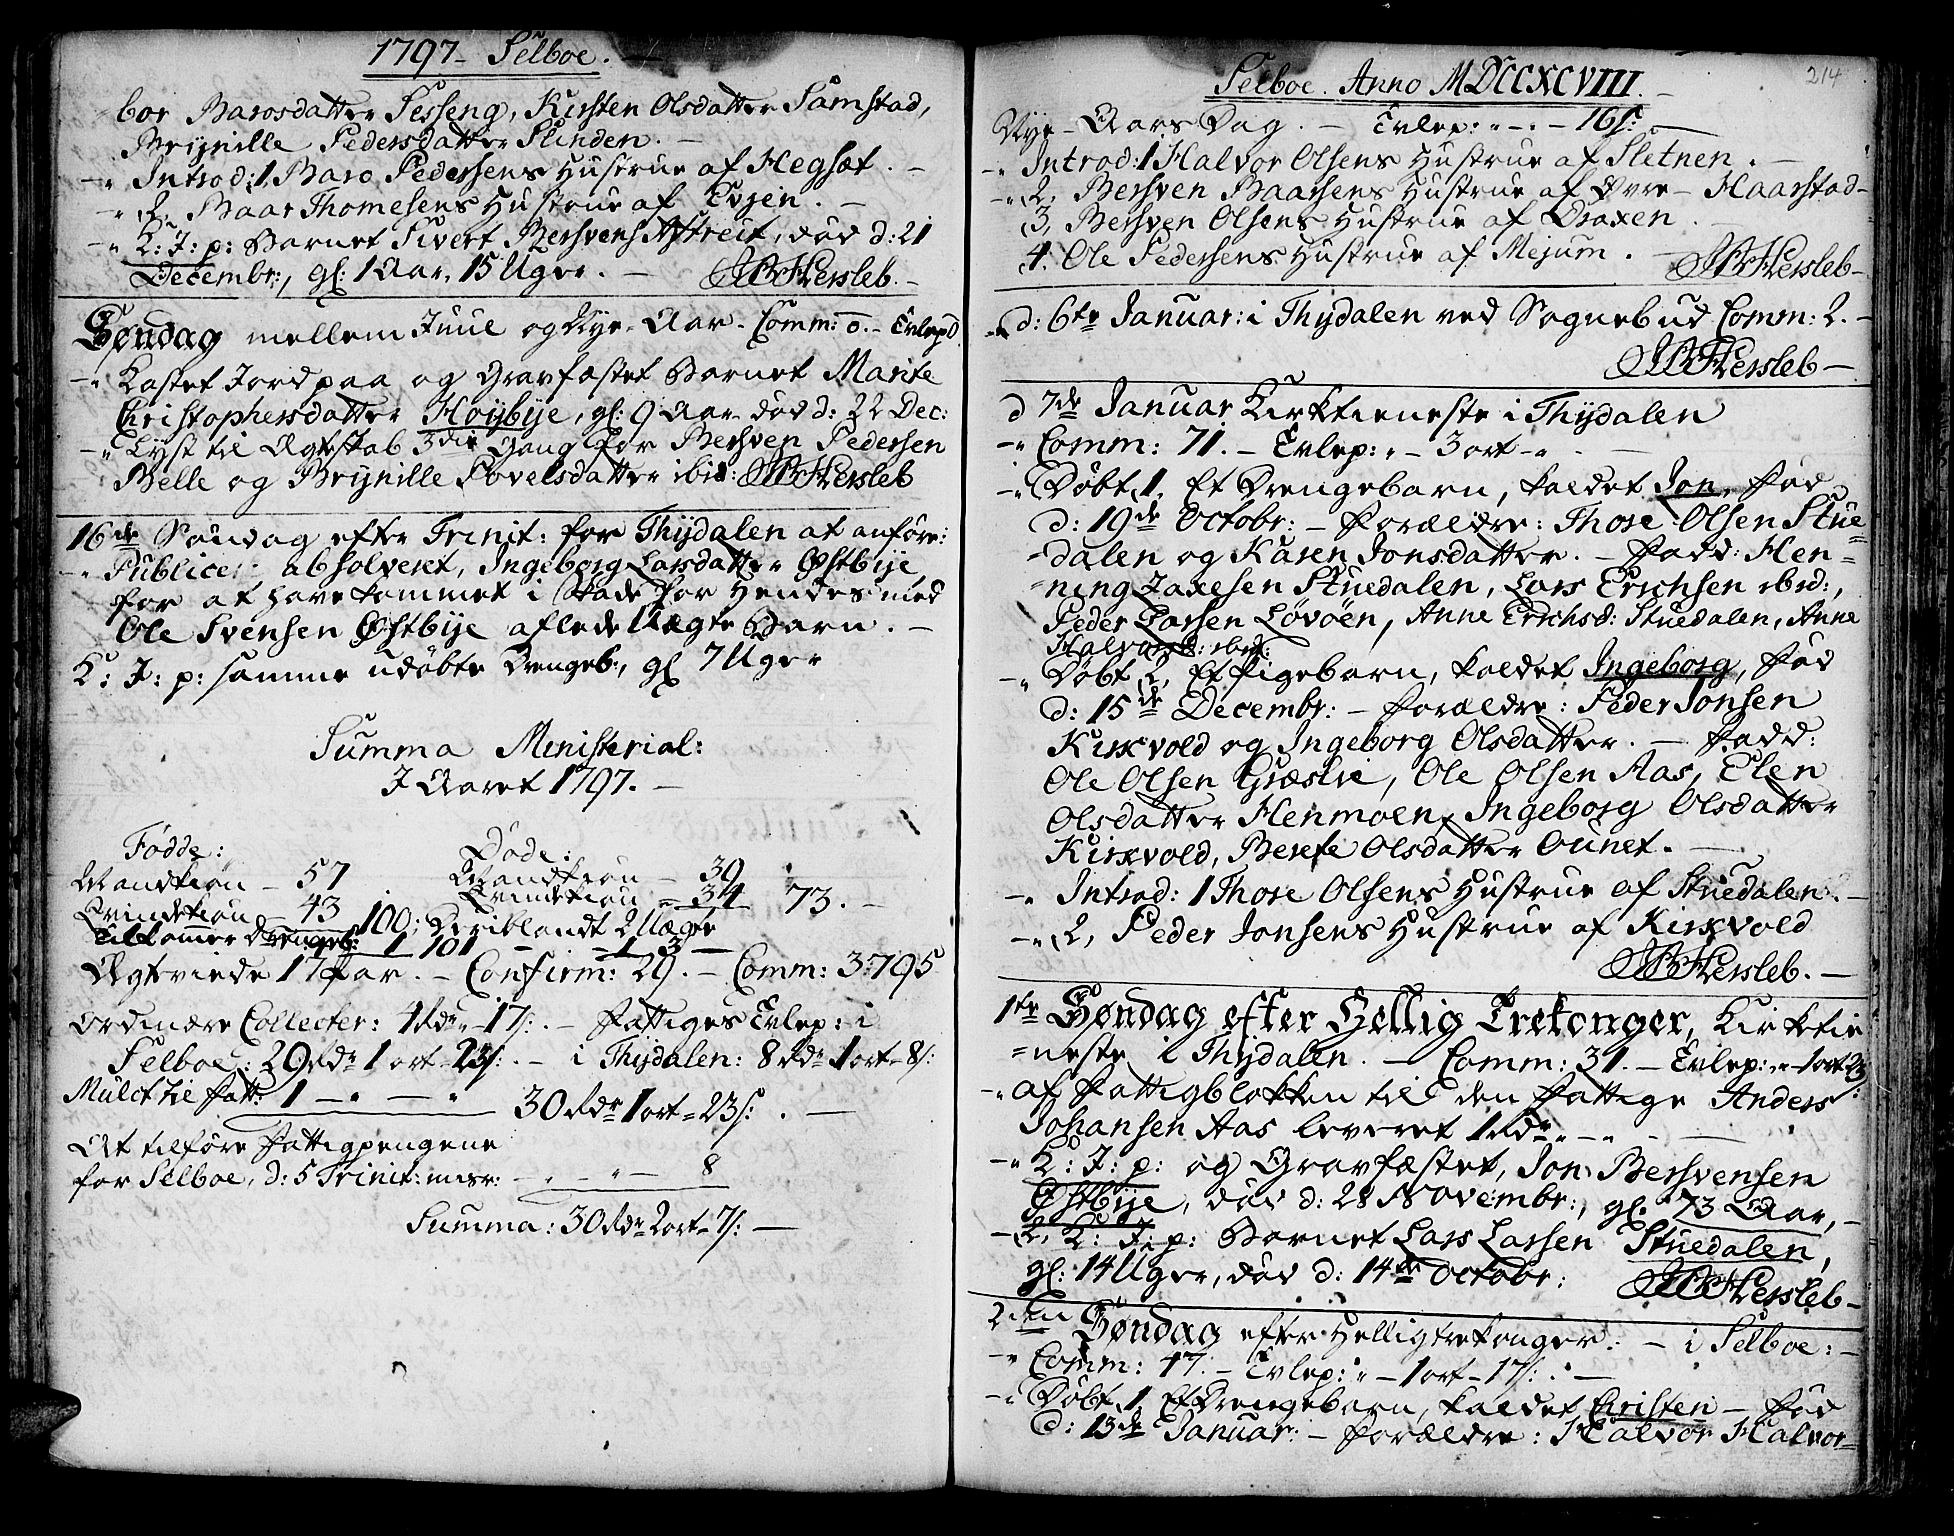 1797 - Selboe. -
bor Barosdatter Sesseng, Kirsten Olsdatter Samstad,
Brynille Pedersdatter Slinden. -
-" Introd: 1. Baro Pedersens Hustrue af Hegsæt. -
-" 2, Baar Thomesens Hustrue af Evjen. -
-" K: J: p: Barnet Sivert Bersvens Aftreit, død d: 21
Decembr:, gl: 1 Aar, 15 Uger. - JBHersleb. -
Søndag mellem Juul og Nye-Aar - Comm: 0. - Evlep 0.
-" Kastet Jord paa og Gravfæstet Barnet Marite
Christophersdatter Høiybye, gl: 9 Aar død d: 22 Dec:
-" Lyst til Ægteskab 3die Gang for Bersven Pedersen
Belle og Brynille Povelsdatter ibid: JBHersleb
16de Søndag efter Trinit: for Thydalen at anføre:
-" Publice: absolveret, Ingeborg Larsdatter Østbye
for at have kommet i Skade for Hendes med
Ole Svensen Østbye aflede Uægte Barn. -
K: J: p: samme udøbte Drengeb:, gl 7 Uger
Summa Ministerial:
I Aaret 1797. -
Fødde: Døde:
Mandkiøn - 57 Mandkiøn - 39
Qvindekiøn - 43 100; Qvindekiøn - 34 73. -
Deriblandt 2 Uægte
Tilkommer Drengeb: 1 101 - - 1 3 -
Ægteviede 17 Par. - Confirm: 29. - Comm: 3795
Ordinære Collecter: 4 Rdr " - 17 s:. - Fattiges Evlep: i
Selboe: 29 Rdr 1 ort - 23 s:. - i Thydalen: 8 Rdr 1 ort - 8 s:
Mulct til Fatt: 1 - " - " 30 Rdr 1 ort - 23 s:. -
At tilføre Fattigpengene
for Selboe, d: 5 Trinit: misr: - " - " - 8
Summa: 30 Rdr 2 ort - 7 s: -
214
Selboe. Anno MDCCXCVIII. -
Nye-Aars Dag. - Evlep: " - " - 16 s: -
-" Introd: 1 Halvor Olsens Hustrue af Sletnen. -
-" 2, Bersven Baarsens Hustrue af Øvre-Haarstad -
3, Bersven Olsens Hustrue af Draxen. -
4. Ole Pedersens Hustrue af Mejum. - JBHersleb -
-" d: 6te Januar: i Thydalen ved Sognebud Comm: 2. -
JBHersleb -
d 7de Januar Kirktieneste i Thydalen
-" Comm: 71. - Evlep: " - 3 ort - " . -
-" Døbt 1, Et Drengebarn, kaldet Jon, fød
d: 19de Octobr: - Forældre: Thore Olsen Stue=
=dalen og Karen Jonsdatter. - Fadd: Hen=
=ning Zaxesen Stuedalen, Lars Erichsen ibid:,
Peder Larsen Løvøen, Anne Erichsd: Stuedalen, Anne
Halvorsd: ibid:
-" Døbt 2, Et Pigebarn, kaldet Ingeborg, fød
d: 15de Decembr: - Forældre: Peder Jonsen
Kirkvold og Ingeborg Olsdatter. - Fadd:
Ole Olsen Græslie, Ole Olsen Aas, Elen
Olsdatter Henmoen, Ingeborg Olsdatter
Kirkvold, Berete Olsdatter Ounet. -
-" Introd: 1 Thore Olsens Hustrue af Stuedalen. -
-" 2, Peder Jonsens Hustrue af Kirkvold
JBHersleb. -
1te Søndag efter Hellig Trekonger, Kirktie=
=neste i Thydalen. - Comm: 31. - Evlep: " - 1 ort 23 s:
-" af Fattigblokken til den fattige Anders
Johansen Aas leveret 1 Rdr " - " . -
-" K: J: p: og Gravfæstet, Jon Bersvensen
Østbye, død d: 28 Novembr:, gl. 73 Aar, -
-" 2, K: J: p: Barnet Lars Larsen Stuedalen,
gl: 14 Uger, død d: 14de Octobr: JBHersleb -
2den Søndag efter Helligtrekonger. - i Selboe: -
-" Comm: 17. - Evlep: " - 1 ort - 17 s: . -
-" Døbt 1, Et Drengebarn, kaldet Christen - fød
d: 13de Januar: - Forældre: Halvor Halvor=